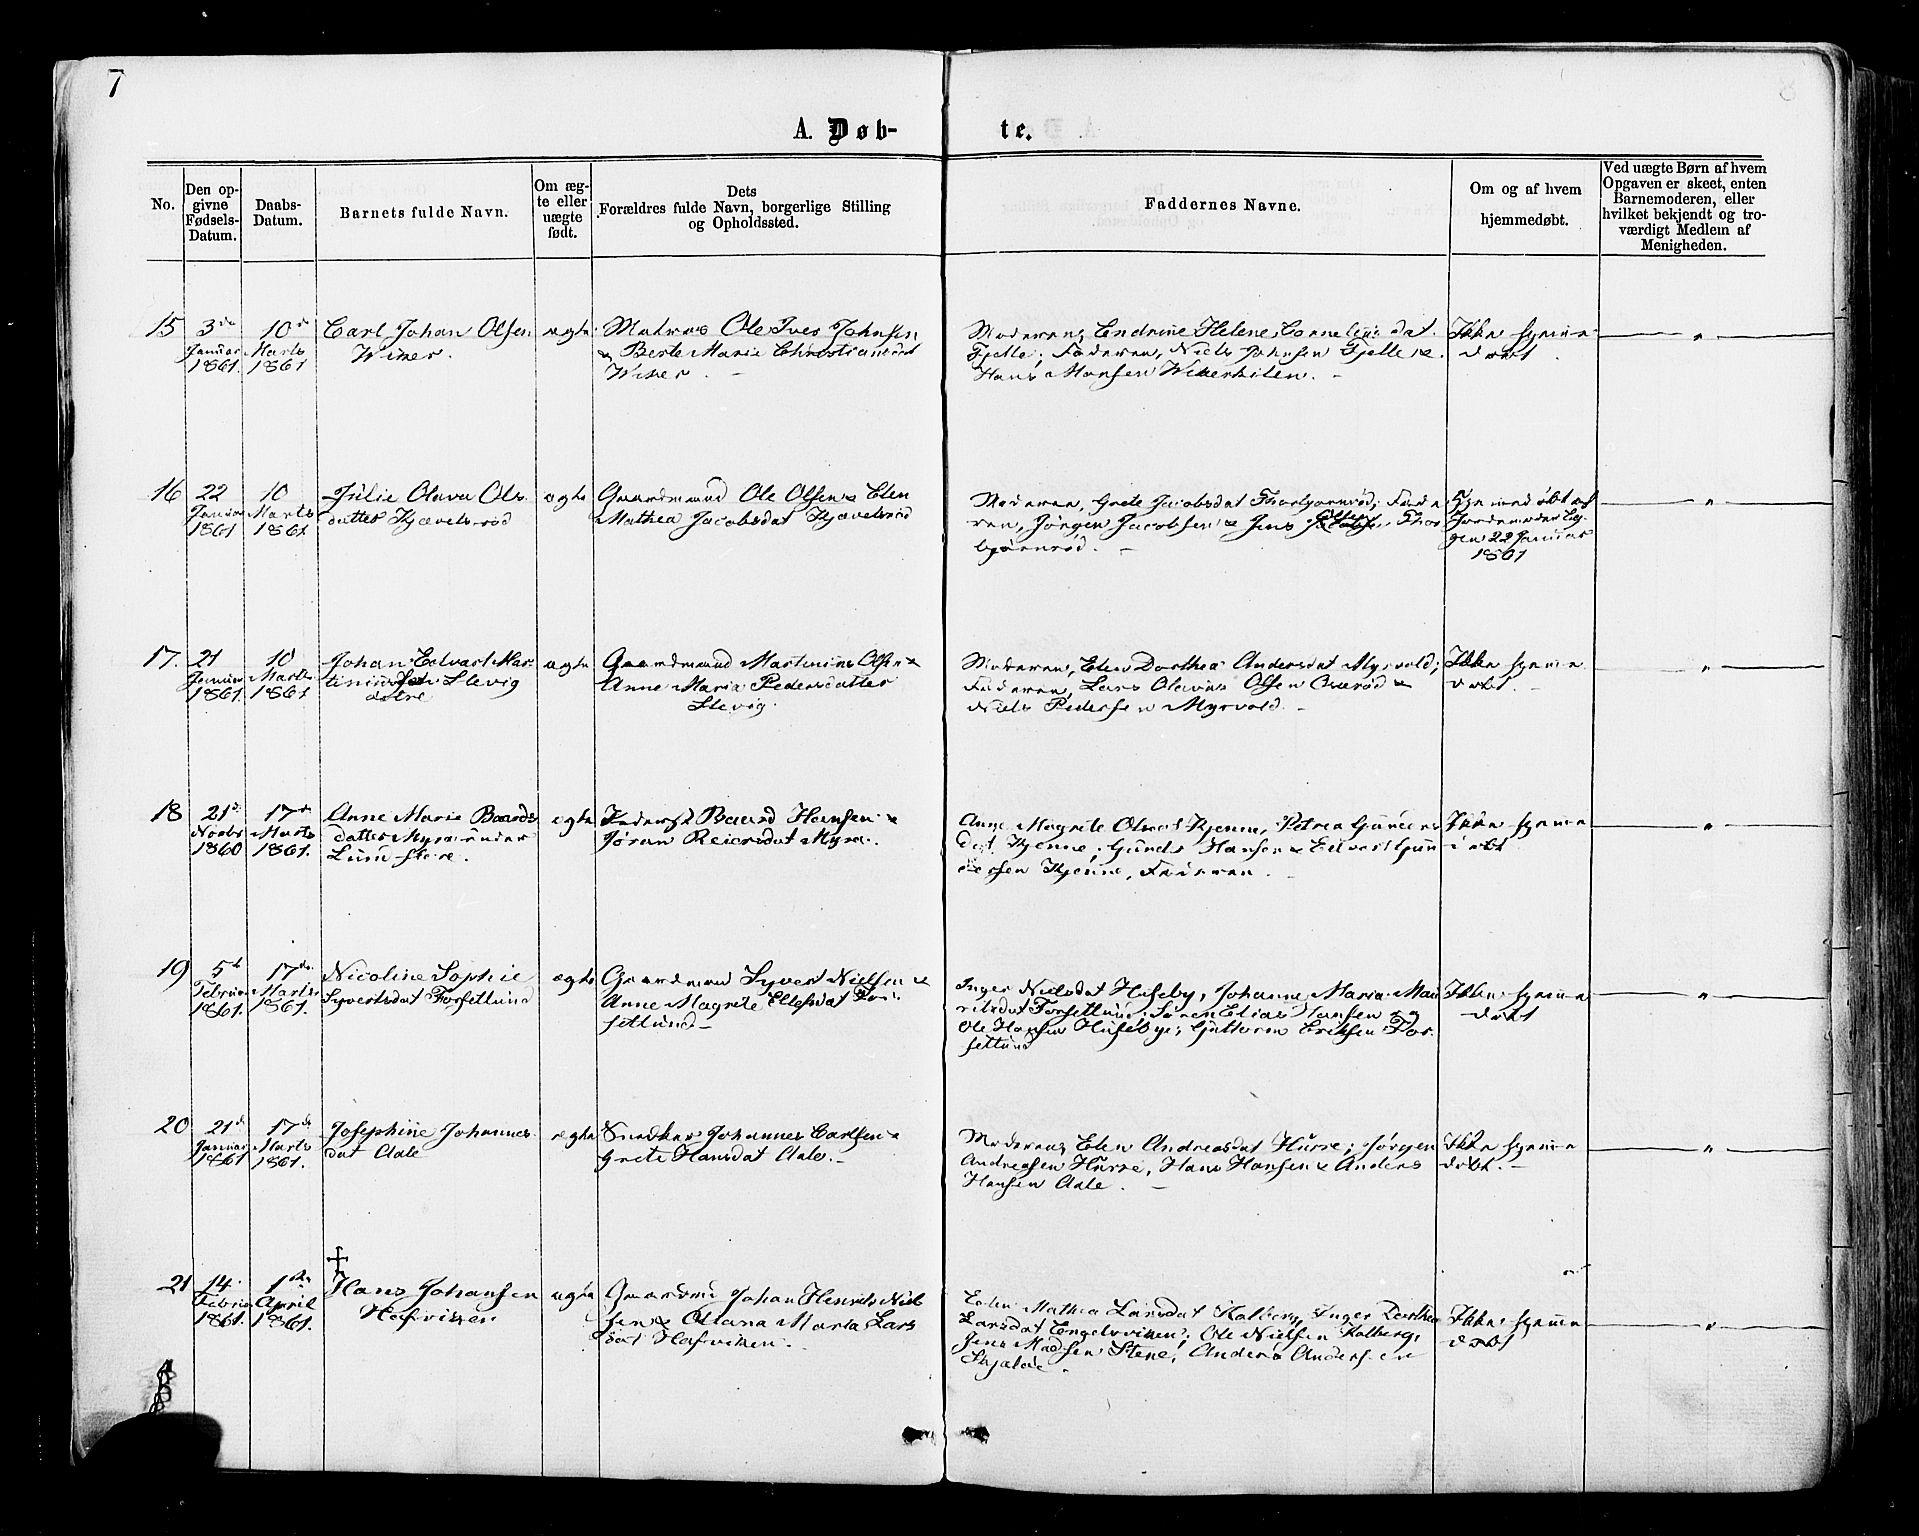 7
A. Døb-
te.
No.
Den op-
givne
Fødsels-
Datum.
Daabs-
Datum.
Barnets fulde Navn.
Om æg-
te eller
uægte
født.
Dets
Forældres fulde Navn, borgerlige Stilling
og Opholdssted.
Faddernes Navne.
Om og af hvem
hjemmedøbt.
Ved uægte Børn af hvem
Opgaven er skeet, enten
Barnemoderen, eller
hvilket bekjendt og tro-
værdigt Medlem af
Menigheden.
15
3die
Januar
1861.
10de
Marts
1861
Carl Johan Olsen
Wiker.
ægte
Matros Ole Iver Johnsen
& Berte Marie Christiansdat
Wiker.
Moderen, Endrine Helene Corneliusdat
Fjelle; Faderen, Niels Johnsen Fjelle &
Hans Monsen Wikerkilen.
Ikke hjemme
døbt
16
22
Januar
1861
10
Marts
1861.
Julie Olava Ols
datter Kjævelsrød
ægte
Gaardmand Ole Olsen & Elen
Mathea Jacobsdat Kjævelsrød
Moderen, Grete Jacobsdat Thorbjørnrød; Fade
ren, Jørgen Jacobsen & Jens Thor
bjørnrød.
Hjemmedøbt af
Jordemoder
22 Januar
1861
17.
21
Januar
1861.
10
Marts
1861
Johan Edvart Mar
tiniussen Slevig
østre
ægte
Gaardmand Martinius Olsen &
Anne Maria Pedersdatter
Slevig.
Moderen, Elen Dorthea Andersdat Myrvold;
Faderen, Lars Olavus Olsen &
Niels Pedersen Myrvold.
Ikke hjemme
døbt.
18
21de
Novbr
1860
17de
Marts
1861.
Anne Marie Baards
datter Myra under
ægte
Baard Hansen &
Jøran Reiersdat Myra.
Anne Magrete Olsdat Kjenne, Petrea Gunders
dat Kjenne; Hansen & Edvart Gun
dersen Kjenne, Faderen.
Ikke hjemme
døbt
19
5te
Februar
1861.
17de
Marts
1861.
Nicoline Sophie
Syvertsdat Forsetlund
ægte
Gaardmand Syvert Nielsen &
Anne Magrete Ellefsdat For
setlund
Inger Nielsdat Huseby, Johanne Maria Mau
ritsdat Forsetlund, Søren Elias Hansen og
Ole Hansen Husebye; Guttorm Eriksen For
setlund
Ikke hjemme
døbt
20
21de
Januar
1861
17de
Marts
1861.
Josephine Johannes
dat Aale
ægte
Snedker Johannes Carlsen &
Grete Hansdat Aale.
Moderen, Elen Andreasdat Hurre; Jørgen
Andreasen Hurre, Hans Hansen & Anders
Hansen Aale.
Ikke hjemme
døbt.
21
14
Februar
1861.
1ste
April
1861.
Hans Johansen
Hafviken
ægte
Gaardmd Johan Henrik Niel
sen & Oliana Maria Lars
dat Hafviken.
Elen Mathea Larsdat Kalberg, Inger Dorthea
Larsdat Engelsviken; Ole Nielsen Kalberg,
Jens Madsen Stene, Anders Andersen
Skjæløe.
Ikke hjemme
døbt